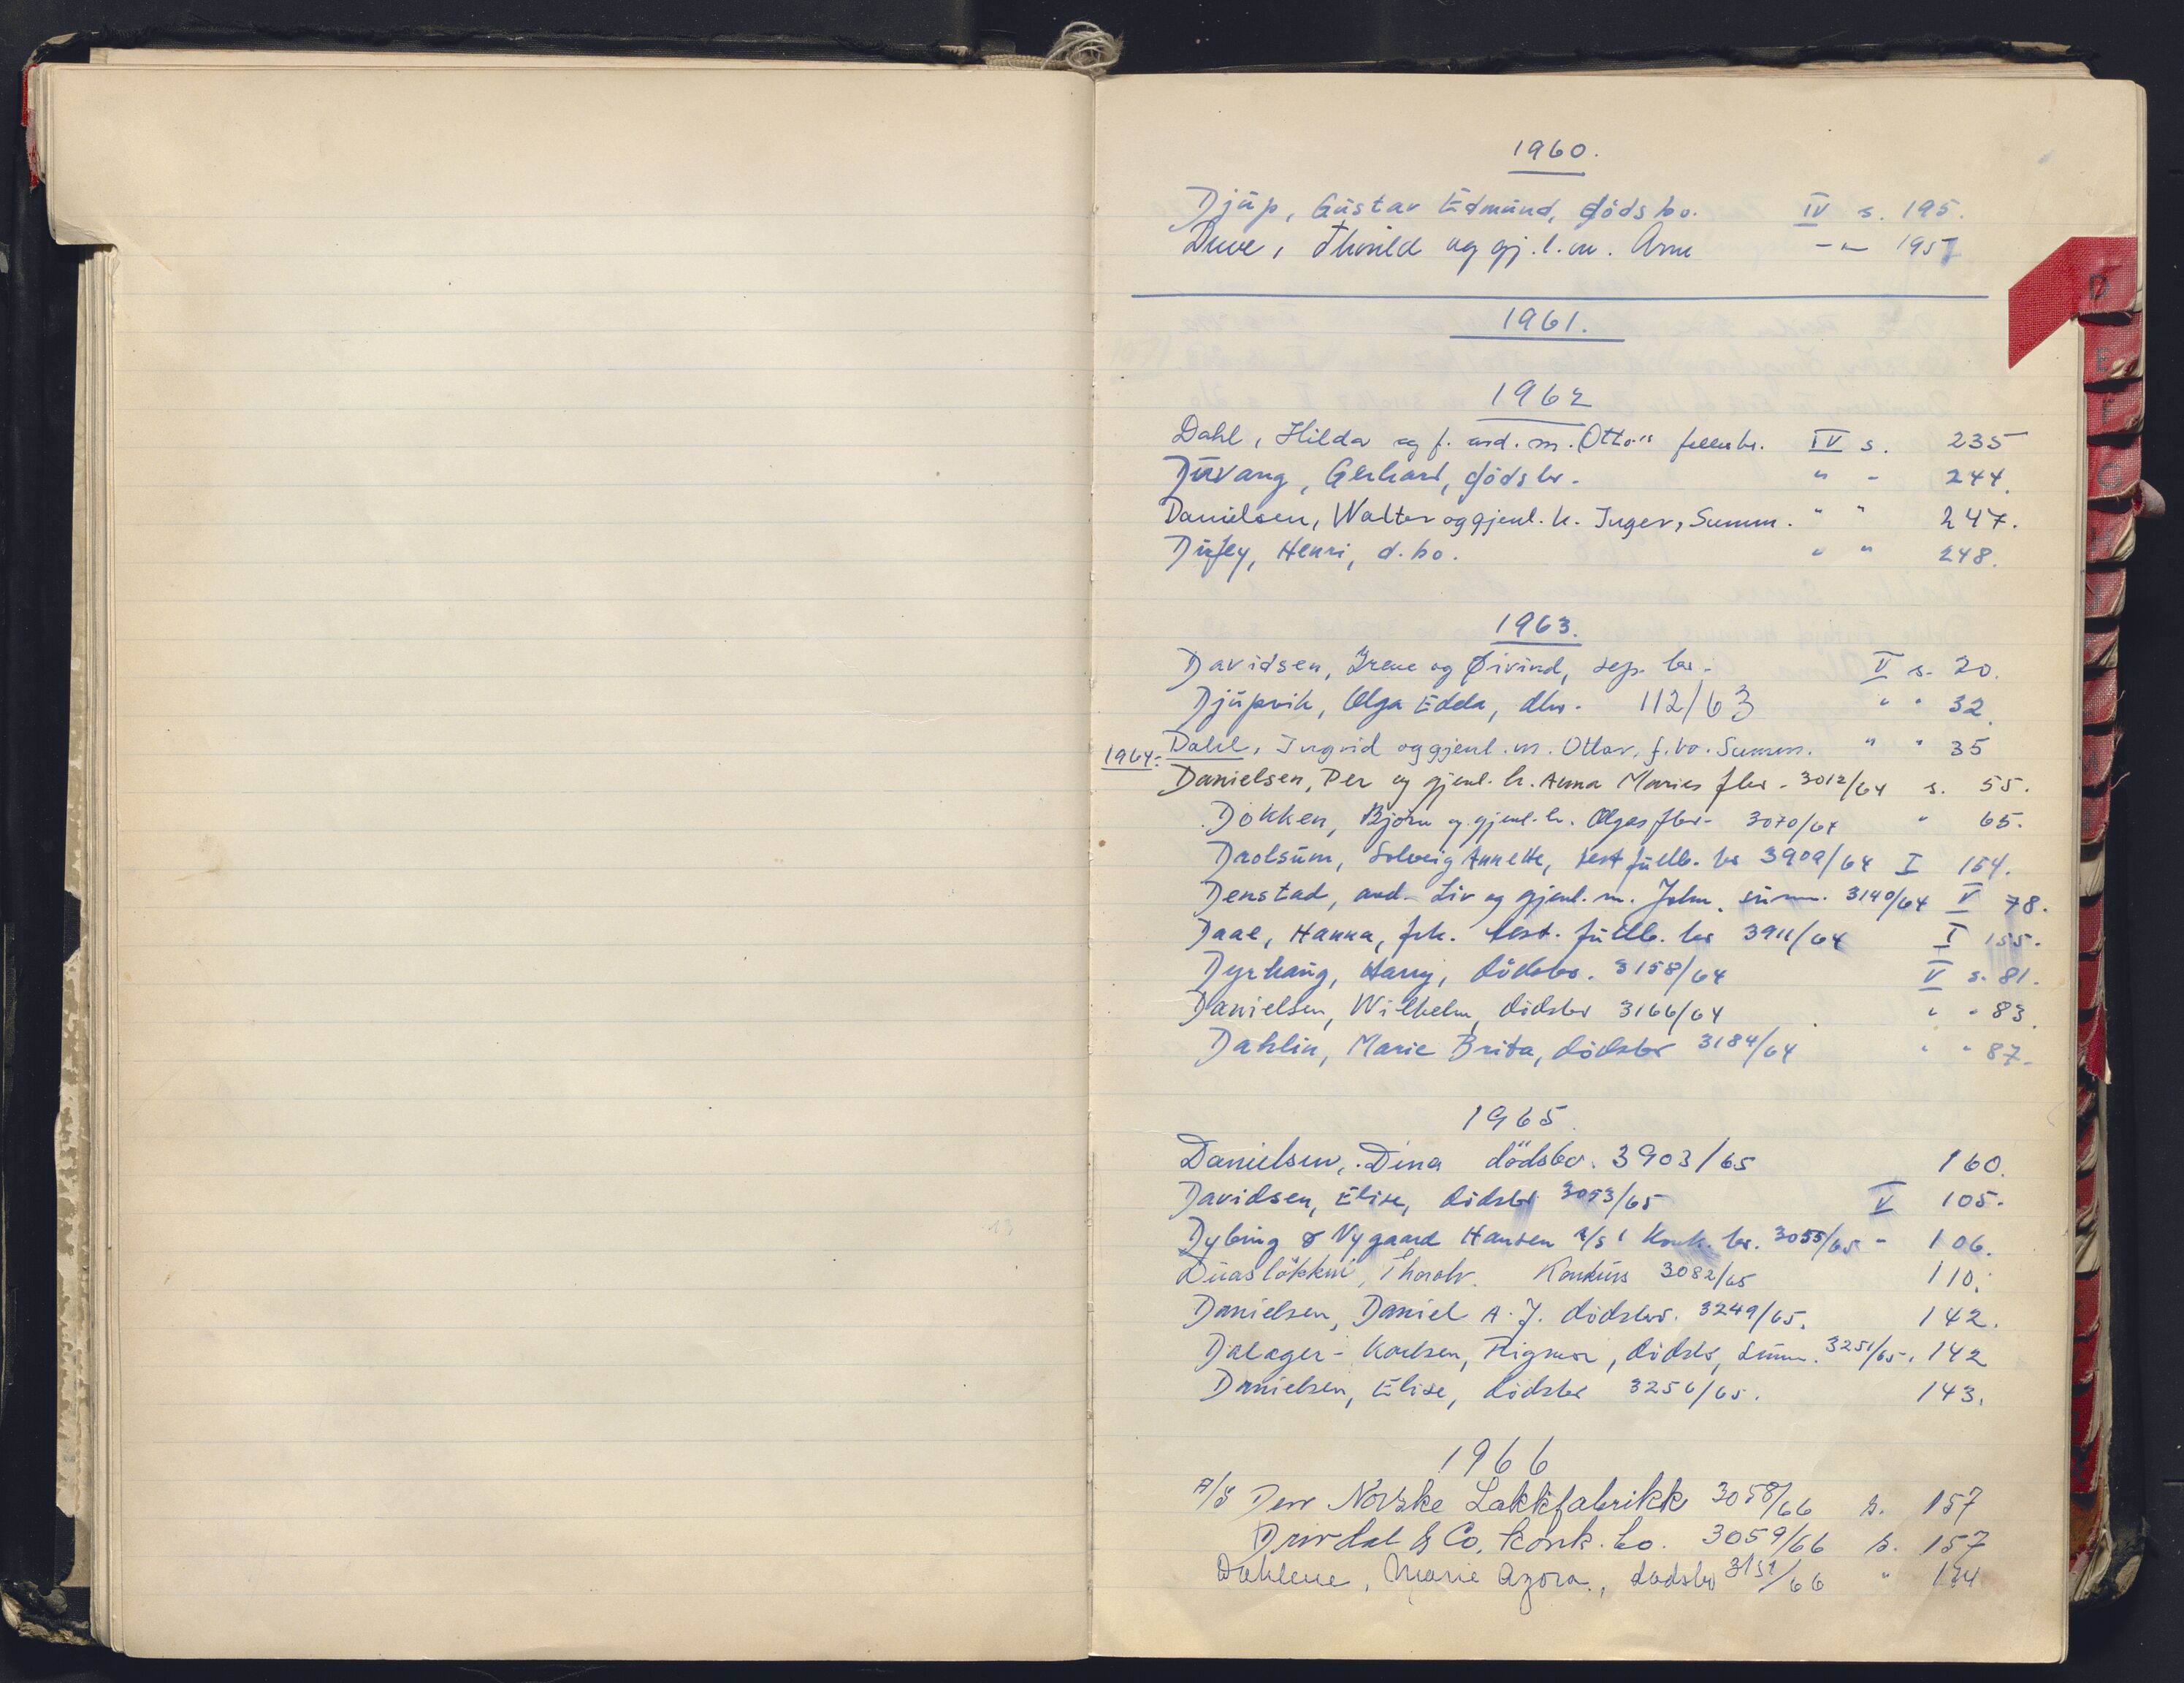 1960.
Djup, Gustav Edmund, dødsbo. IV s. 195.
Duve, Thorild og gj.l.m. Arne -"- 195
1961.
1962
Dahl, Hilda og f. avd. m. Otto's fellesbo. IV s. 235
Durvang, Gerhard, dødsbo. " - 244.
Danielsen, Walter og gjenl. h. Inger, Summ. " " 247.
Dufey, Henri, d.bo. " " 248.
1963.
Davidsen, Irene og Øivind, sep. bo. V s. 20.
Djupvik, Olga Edda, dbo. 112/63 " " 32.
1964: Dahl, Ingrid og gjenl. m. Ottar, f.bo. Summ. " " 35
Danielsen, Per og gjenl. h. Anna Maries fbo. 3012/64 s. 55.
Dokken, Bjørn og gjenl. h. Olgas fbo. 3070/64 " 65.
Drolsum, Solveig Annette, testfullb. bo 3909/64 I 154.
Denstad, avd. Liv og gjenl. m. John, summ. 3140/64 V 78.
Daae, Hanna, frk. test. fullb. bo 3911/64 I 155.
Dyrhaug, Harry, dødsbo. 3158/64 V s. 81.
Danielsen, Wilhelm, dødsbo 3166/64 " " 83.
Dahlin, Marie Brita, dødsbo 3184/64 " " 87.
1965.
Danielsen, Dina dødsbo. 3903/65 160.
Davidsen, Elise, dødsbo 3053/65 V 105.
Dybing & Nygaard Hansen A/S, konk. bo. 3055/65 - 106.
Thoralv. Konkurs 3082/65 110.
Danielsen, Daniel A. J. dødsbo. 3249/65. 142.
Dalager-Karlsen, Rigmor, dødsbo, summ. 3251/65. 142
Danielsen, Elise, dødsbo 3256/65. 143.
1966
A/S Den Norske Lakkfabrikk 3058/66 s. 157
Drivdal & Co, konk. bo. 3059/66 s. 157
Dahlene, Marie Azora, dødsbo 3151/66 " 174
D
E
F
G
H
I